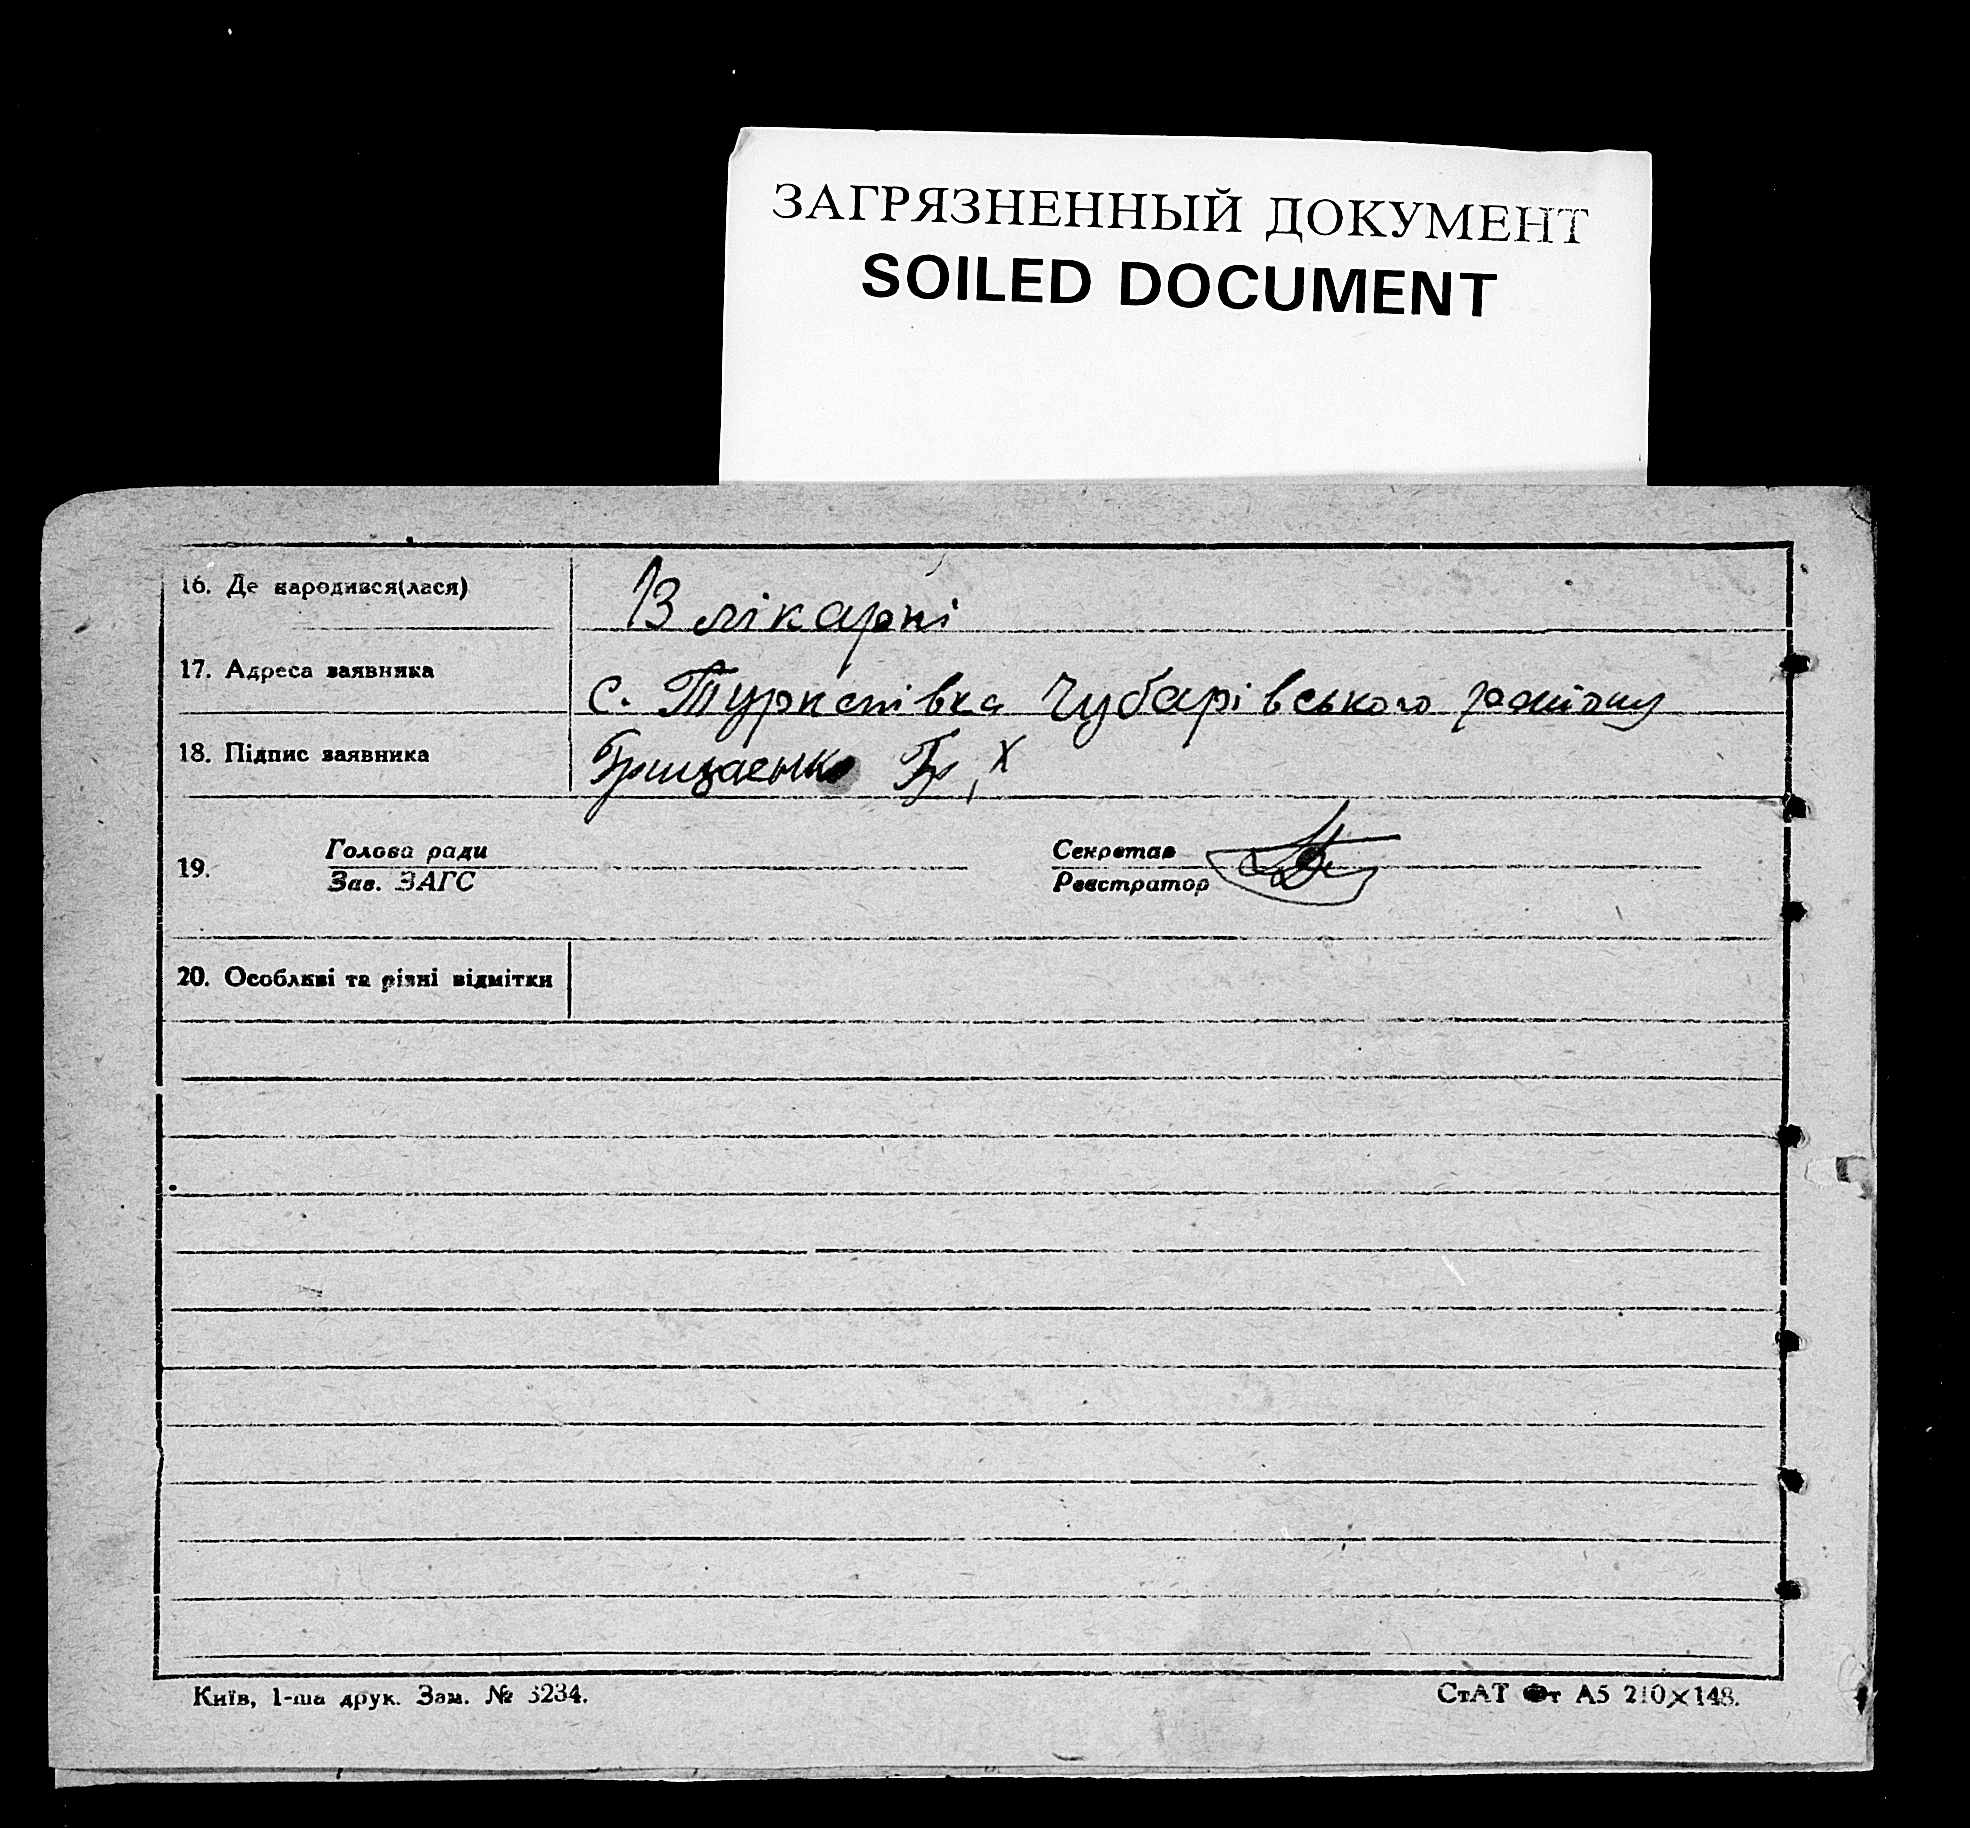 ЗАГРЯЗНЕННЫЙ ДОКУМЕНТ
SOILED DOCUMENT
16. Де народився(лася)
В лікарні
17. Адреса заявника
с. Туркенівка Чубарівського району
18. Підпис заявника
Грицаенко Гр, Х
19. Голова ради
Зав. ЗАГС
Секретар
Реєстратор
20. Особливі та різні відмітки
Київ, 1-ша друк. Зам. № 3234.
СтАТ Фт А5 210×148.